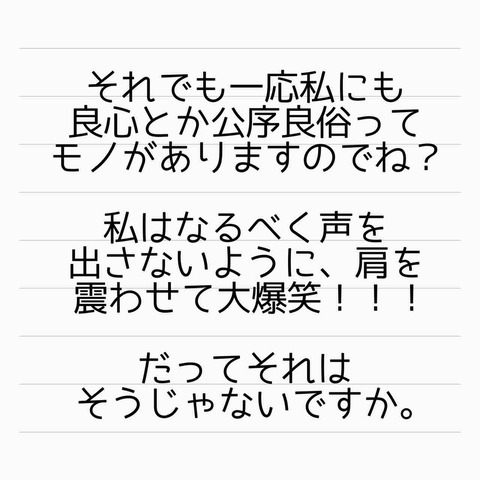 それでも一応私にも
良心とか公序良俗って
モノがありますのでね？
私はなるべく声を
出さないように、肩を
震わせて大爆笑！！！
だってそれは
そうじゃないですか。